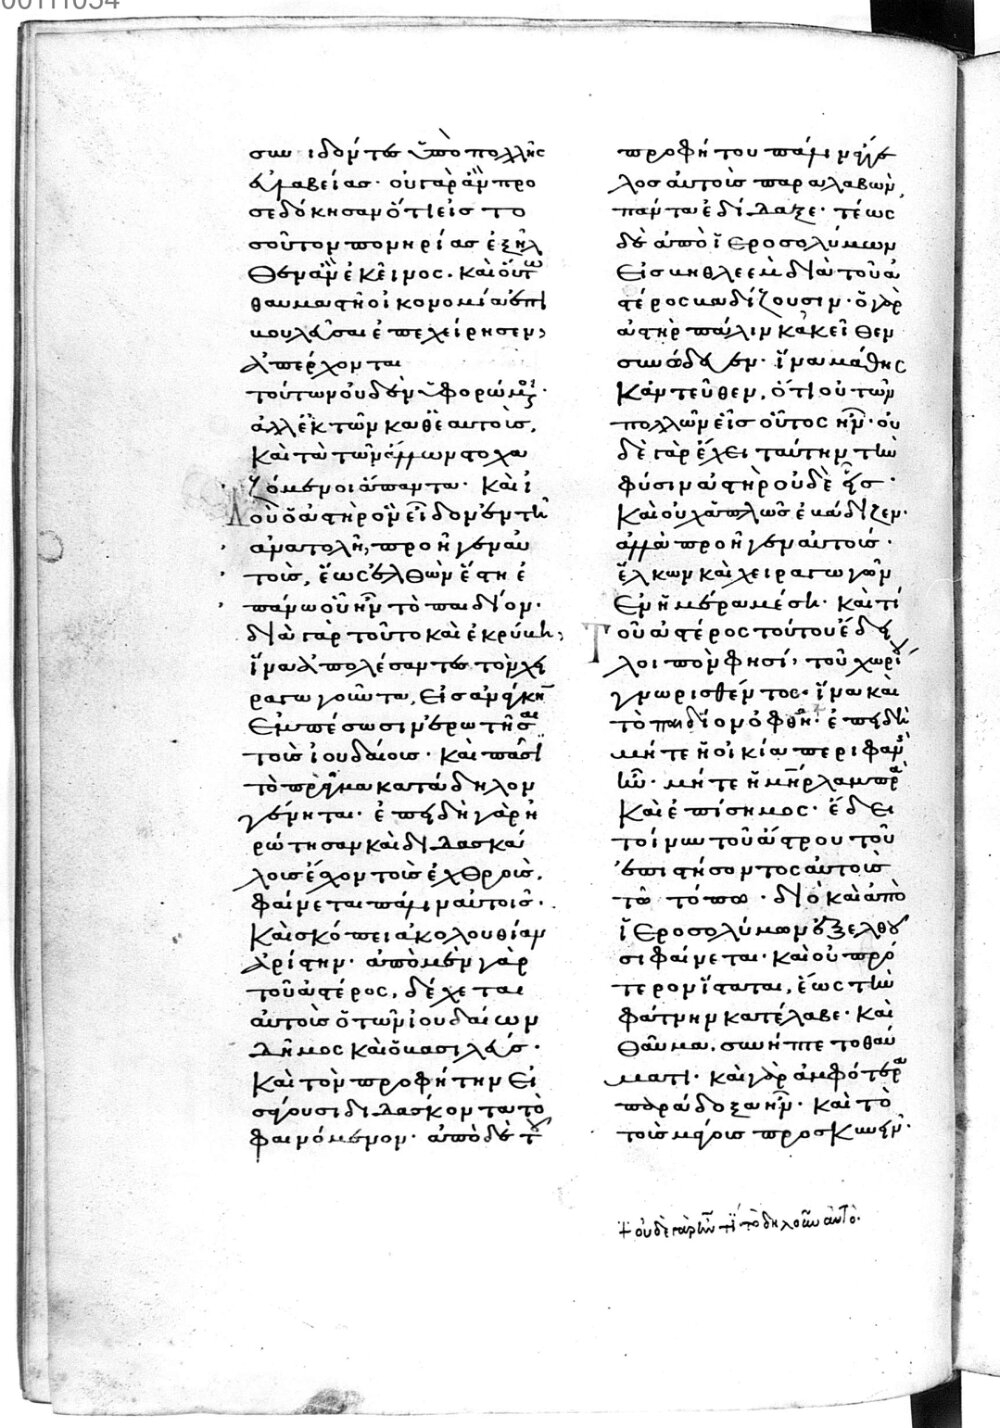 00111034
συνιδόντες ὑπὸ πολλῆς
εὐλαβείας· οὐ γὰρ ἂν προ
σεδόκησαν ὅτι εἰς το
σοῦτον πονηρίας ἐξῆλ
θεν ἂν ἐκεῖνος· καὶ οὕτω
θαυμαστῆ οἰκονομία ἐπι
βουλεῦσαι ἐπεχείρησεν·
ἀπέρχονται
τούτων οὐδὲν ὑφορώμενοι·
ἀλλ' ἐκ τῶν καθ' ἑαυτοὺς,
καὶ τὰ τῶν ἄλλων στοχα
ζόμενοι ἅπαντα· καὶ ἰ
δοὺ ὁ ἀστὴρ ὃν εἶδον ἐν τῆ
ἀνατολῆ, προῆγεν αὐ
τοὺς, ἕως ἐλθὼν ἔστη ἐ
πάνω οὗ ἦν τὸ παιδίον·
διὰ γὰρ τοῦτο καὶ ἐκρύβη,
ἵνα ἀπολέσαντες τὸν χει
ραγωγοῦντα, εἰς ἀνάγκην
ἐμπέσωσιν ἐρωτῆσαι
τοὺς ἰουδαίους· καὶ πᾶσι
τὸ πρᾶγμα κατάδηλον
γένηται· ἐπειδὴ γὰρ ἠ
ρώτησαν καὶ διδασκά
λους ἔσχον τοὺς ἐχθροὺς,
φαίνεται πάλιν αὐτοῖς·
καὶ σκόπει ἀκολουθίαν
ἀρίστην· ἀπὸ μὲν γὰρ
τοῦ ἀστέρος, δέχεται
αὐτοὺς ὁ τῶν ἰουδαίων
δῆμος καὶ ὁ βασιλεύς·
καὶ τὸν προφήτην εἰ
σάγουσι διδάσκοντα τὸ
φαινόμενον· ἀπὸ δὲ τοῦ
προφήτου πάλιν ἄγγε
λος αὐτοὺς παραλαβὼν,
πάντα ἐδίδαξε· τέως
δὲ ἀπὸ ἱεροσολύμων
εἰς βηθλεὲμ διὰ τοῦ ἀ
στέρος βαδίζουσιν· ὁ γὰρ
ἀστὴρ πάλιν κἀκεῖθεν
συνώδευεν· ἵνα μάθης
κἀντεῦθεν, ὅτι οὐ τῶν
πολλῶν εἷς οὗτος ἦν· οὐ
δὲ γὰρ ἔχει ταύτην τὴν
φύσιν ἀστὴρ οὐδὲ εἷς·
καὶ οὐχ ἁπλῶς ἐβάδιζεν·
ἀλλὰ προῆγεν αὐτοὺς·
ἕλκων καὶ χειραγωγῶν
ἐν ἡμέρα μέση· καὶ τί
τοῦ ἀστέρος τούτου ἔδει
λοιπὸν φησί, τοῦ χωρίου
γνωρισθέντος· ἵνα καὶ
τὸ παιδίον ὀφθῆ· ἐπειδὴ
μήτε ἡ οἰκία περιφανὴς
ἦν· μήτε ἡ μήτηρ λαμπρὰ
καὶ ἐπίσημος· ἔδει
τοίνυν τοῦ ἄστρου τοῦ
ἐπιστήσοντος αὐτοὺς
τῶ τόπω· διὸ καὶ ἀπὸ
ἱεροσολύμων ἐξελθοῦ
σι φαίνεται· καὶ οὐ πρό
τερον ἵσταται, ἕως τὴν
φάτνην κατέλαβε· καὶ
θαῦμα συνῆπτε τὸ θαύ
ματι· καὶ γὰρ ἀμφότερα
παράδοξα ἦν· καὶ τὸ
τοὺς μάγους προσκυνεῖν·
οὐδὲ γὰρ ἦν τι τὸ δηλοῦν αὐτό·